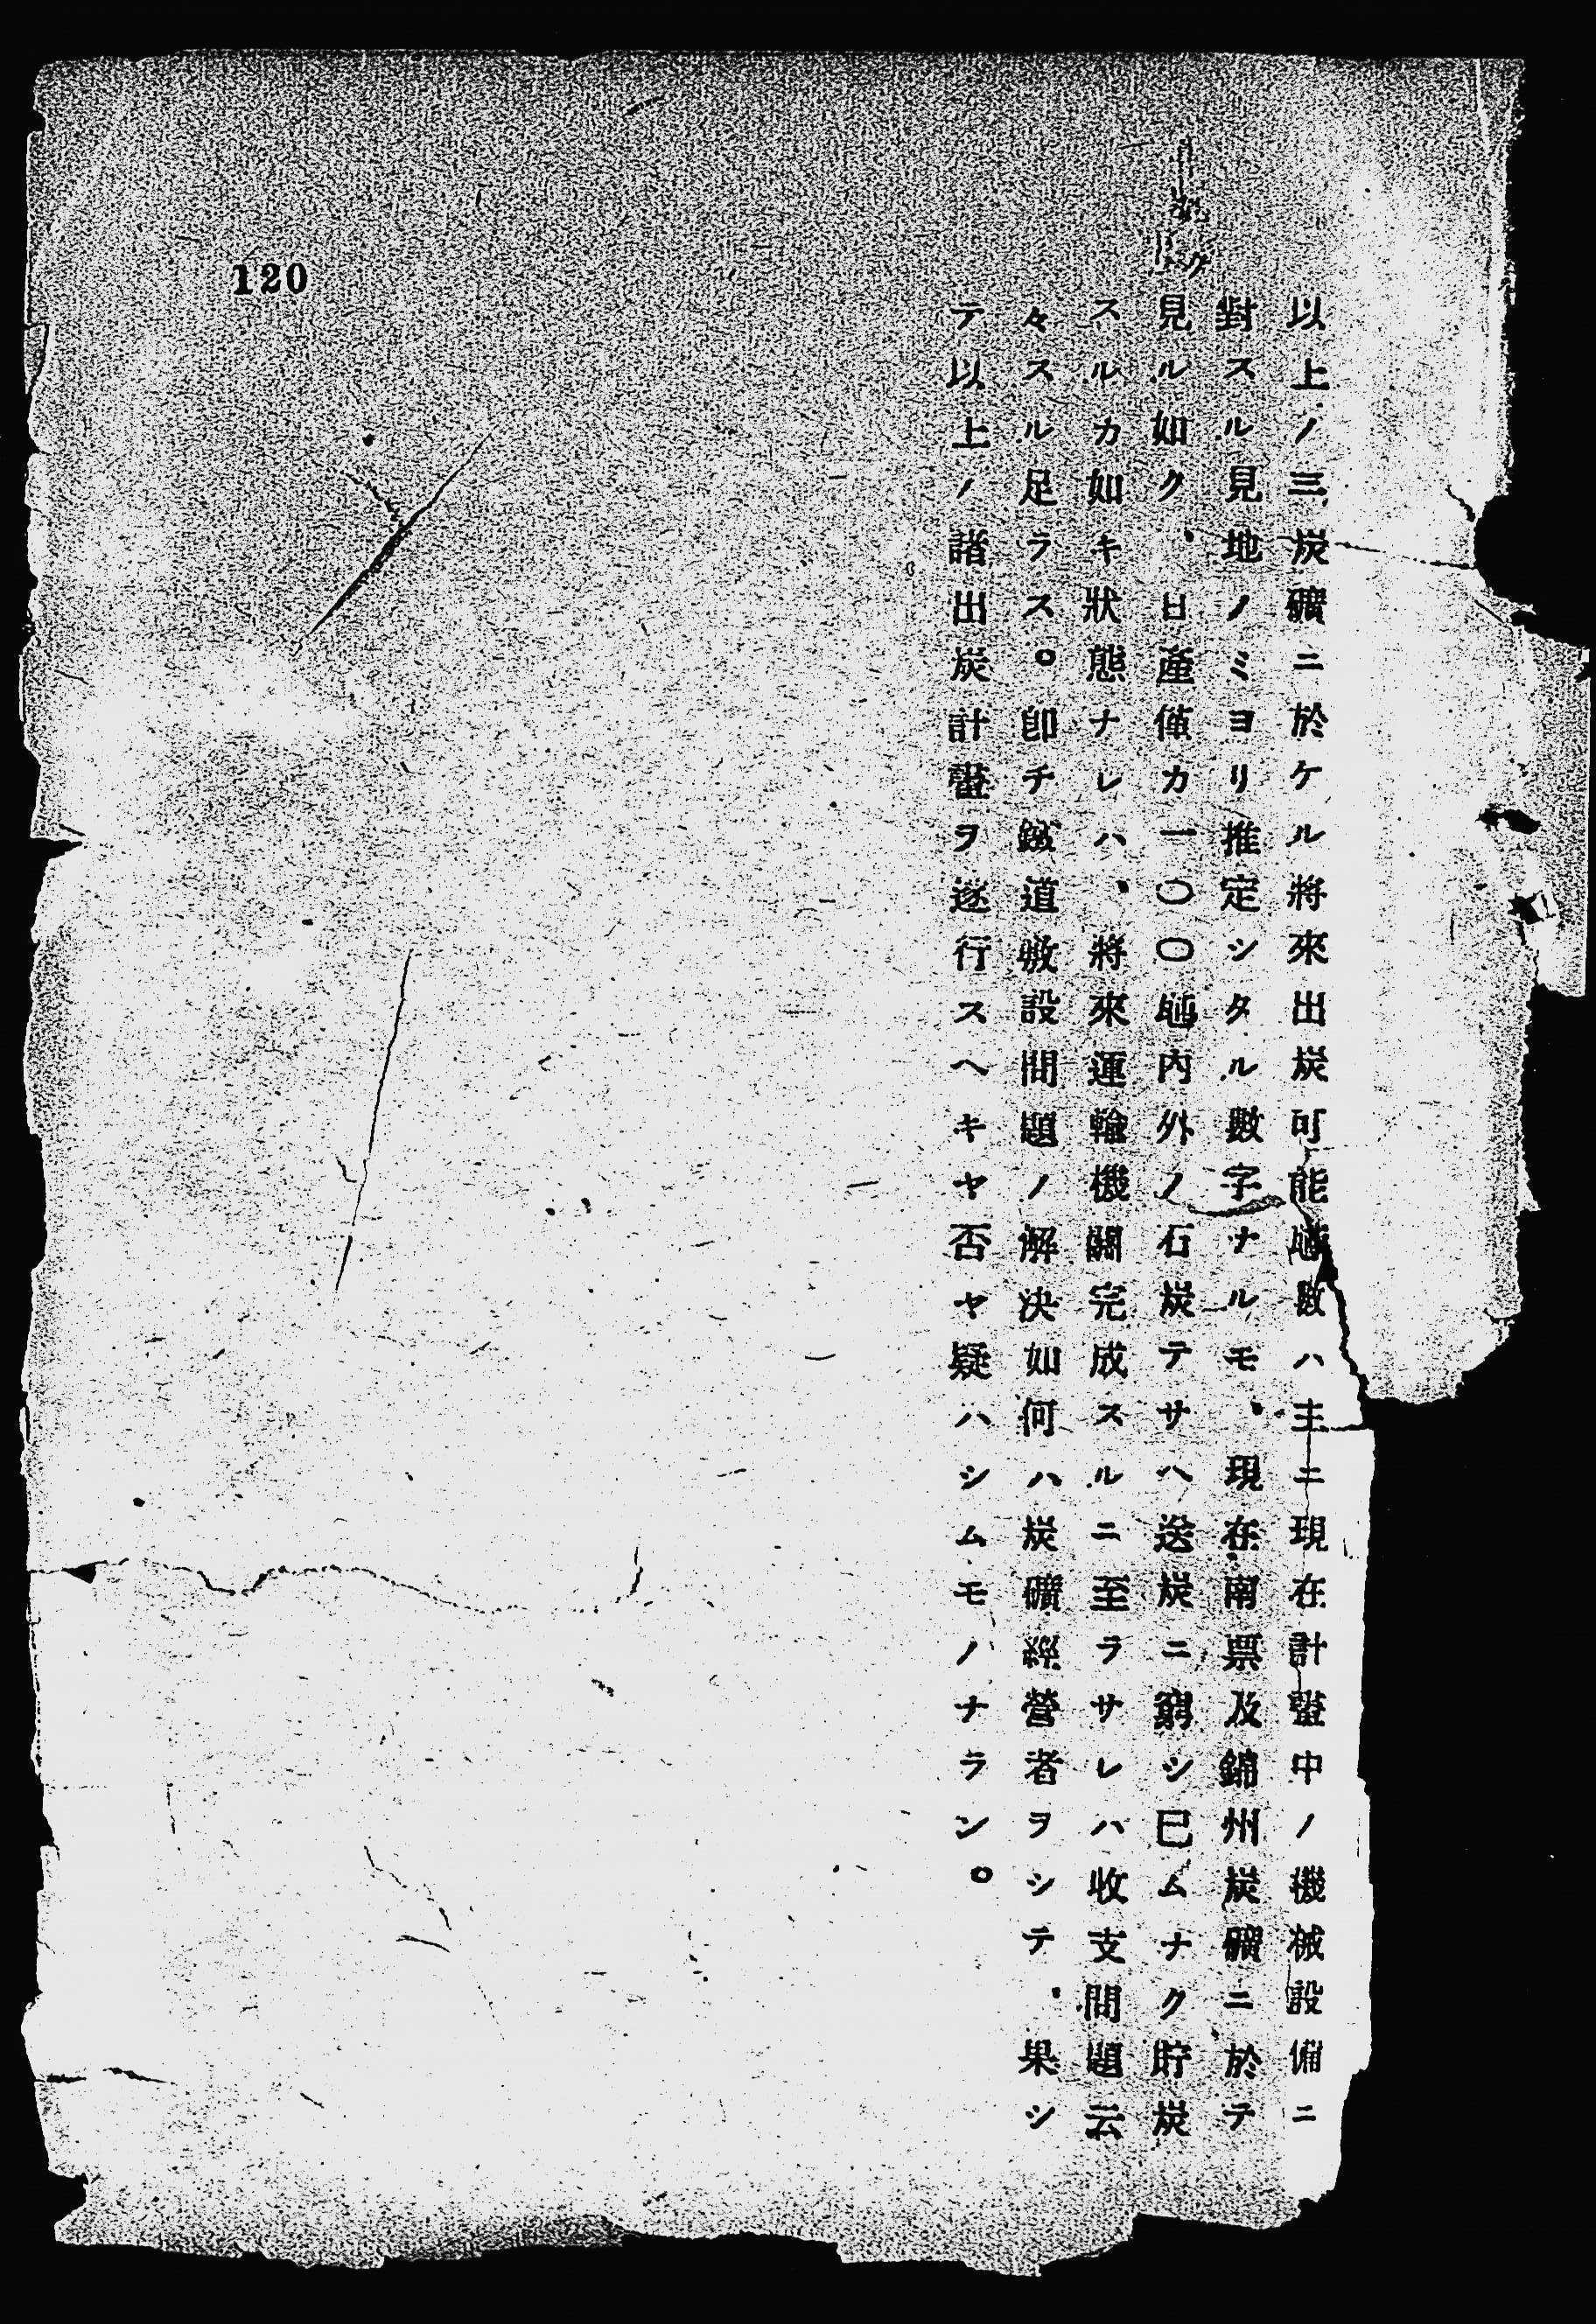 以上ノ三炭礦ニ於ケル將來出炭可能噸數ハ主ニ現在計畫中ノ機械設備ニ
對スル見地ノミヨリ推定シタル數字ナルモ、現在南票及錦州炭礦ニ於テ
見ル如ク、日產僅カ一〇〇噸內外ノ石炭テサヘ送炭ニ窮シ已ムナク貯炭
スルカ如キ狀態ナレハ、將來運輸機關完成スルニ至ラサレハ收支問題云
々スル足ラス。卽チ鐵道敷設問題ノ解決如何ハ炭礦經營者ヲシテ、果シ
テ以上ノ諸出炭計畫ヲ遂行スヘキヤ否ヤ疑ハシムモノナラン。
120